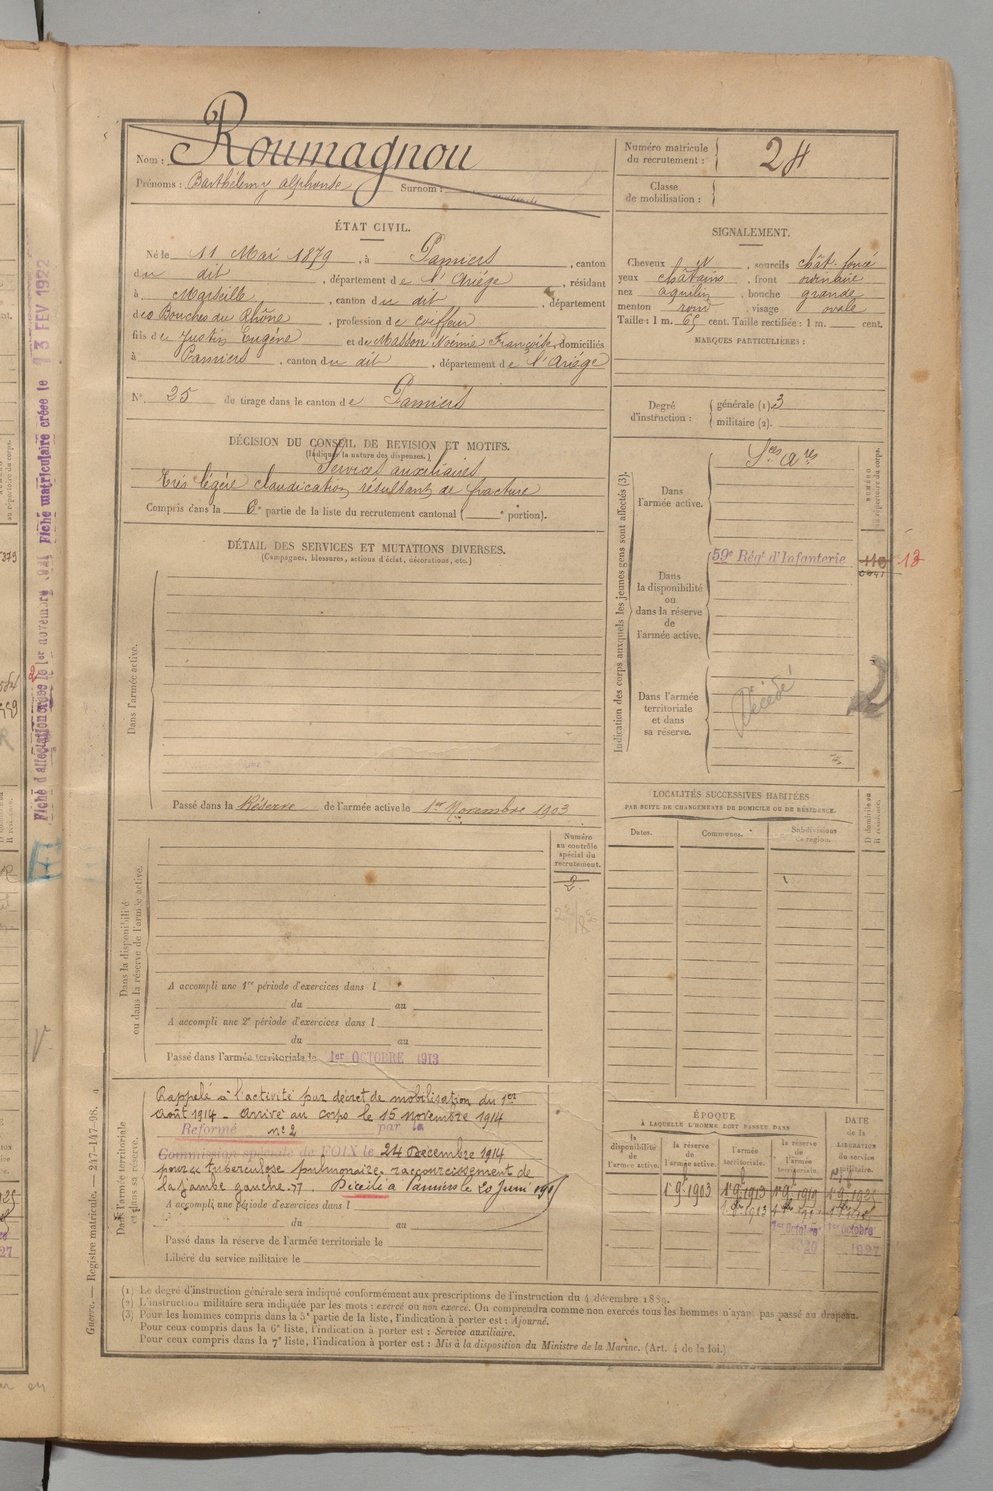 Nom : Roumagnou
Prénoms : Barthélemy Alphonse Surnom :
Numéro matricule du recrutement : 24
Classe de mobilisation :
ÉTAT CIVIL.
Né le 11 Mai 1879, à Pamiers, canton
du dit, département de l'Ariège, résidant
à Marseille, canton du dit, département
des Bouches du Rhône, profession de coiffeur
fils de Justin Eugène et de Masson Noémie Françoise, domiciliés
à Pamiers, canton du dit, département de l'Ariège
N° 25 de tirage dans le canton de Pamiers
SIGNALEMENT.
Cheveux N, sourcils chât. foncé
yeux châtains, front ordinaire
nez aquilin, bouche grande
menton rond, visage ovale
Taille : 1 m. 65 cent. Taille rectifiée : 1 m. cent.
MARQUES PARTICULIÈRES :
Degré d'instruction : générale (1). 3
militaire (2).
DÉCISION DU CONSEIL DE REVISION ET MOTIFS.
(Indiquer la nature des dispenses.)
Services auxiliaires
Très légère claudication résultant de fracture
Compris dans la 6e partie de la liste du recrutement cantonal ( e portion).
DÉTAIL DES SERVICES ET MUTATIONS DIVERSES.
(Campagnes, blessures, actions d'éclat, décorations, etc.)
Dans l'armée active.
Passé dans la Réserve de l'armée active le 1er Novembre 1903
Indication des corps auxquels les jeunes gens sont affectés (3).
Dans l'armée active.
Dans la disponibilité ou dans la réserve de l'armée active.
59e Régt d'Infanterie
13
Dans l'armée territoriale et dans sa réserve.
Décédé
LOCALITÉS SUCCESSIVES HABITÉES
PAR SUITE DE CHANGEMENTS DE DOMICILE OU DE RÉSIDENCE.
Dates. Communes. Subdivisions de région.
D domicile ou R résidence.
Numéro au contrôle spécial du recrutement.
2
Dans la disponibilité ou dans la réserve de l'armée active.
A accompli une 1re période d'exercices dans l
du au
A accompli une 2e période d'exercices dans l
du au
Passé dans l'armée territoriale le 1er OCTOBRE 1913
Dans l'armée territoriale et dans sa réserve.
Rappelé à l'activité par décret de mobilisation du 1er
Août 1914 - Arrivé au corps le 15 novembre 1914
Réformé n° 2 par la
Commission spéciale de FOIX le 24 Décembre 1914
pour tuberculose pulmonaire raccourcissement de
la jambe gauche. Décédé à Pamiers le 20 Juin
A accompli une période d'exercices dans l
du au
Passé dans la réserve de l'armée territoriale le
Libéré du service militaire le
ÉPOQUE
À LAQUELLE L'HOMME DOIT PASSER DANS
la disponibilité de l'armée active. la réserve de l'armée active. l'armée territoriale. la réserve de l'armée territoriale.
DATE de la LIBÉRATION du service militaire.
1er Octobre 1er Octobre
(1) Le degré d'instruction générale sera indiqué conformément aux prescriptions de l'instruction du 4 décembre 1889.
(2) L'instruction militaire sera indiquée par les mots : exercé ou non exercé. On comprendra comme non exercés tous les hommes n'ayant pas passé au drapeau.
(3) Pour les hommes compris dans la 5e partie de la liste, l'indication à porter est : Ajourné.
Pour ceux compris dans la 6e liste, l'indication à porter est : Service auxiliaire.
Pour ceux compris dans la 7e liste, l'indication à porter est : Mis à la disposition du Ministre de la Marine. (Art. 4 de la loi.)
Guerre. — Registre matricule. — 247-147-98.
Fiche matriculaire créée le 13 FEV 1922